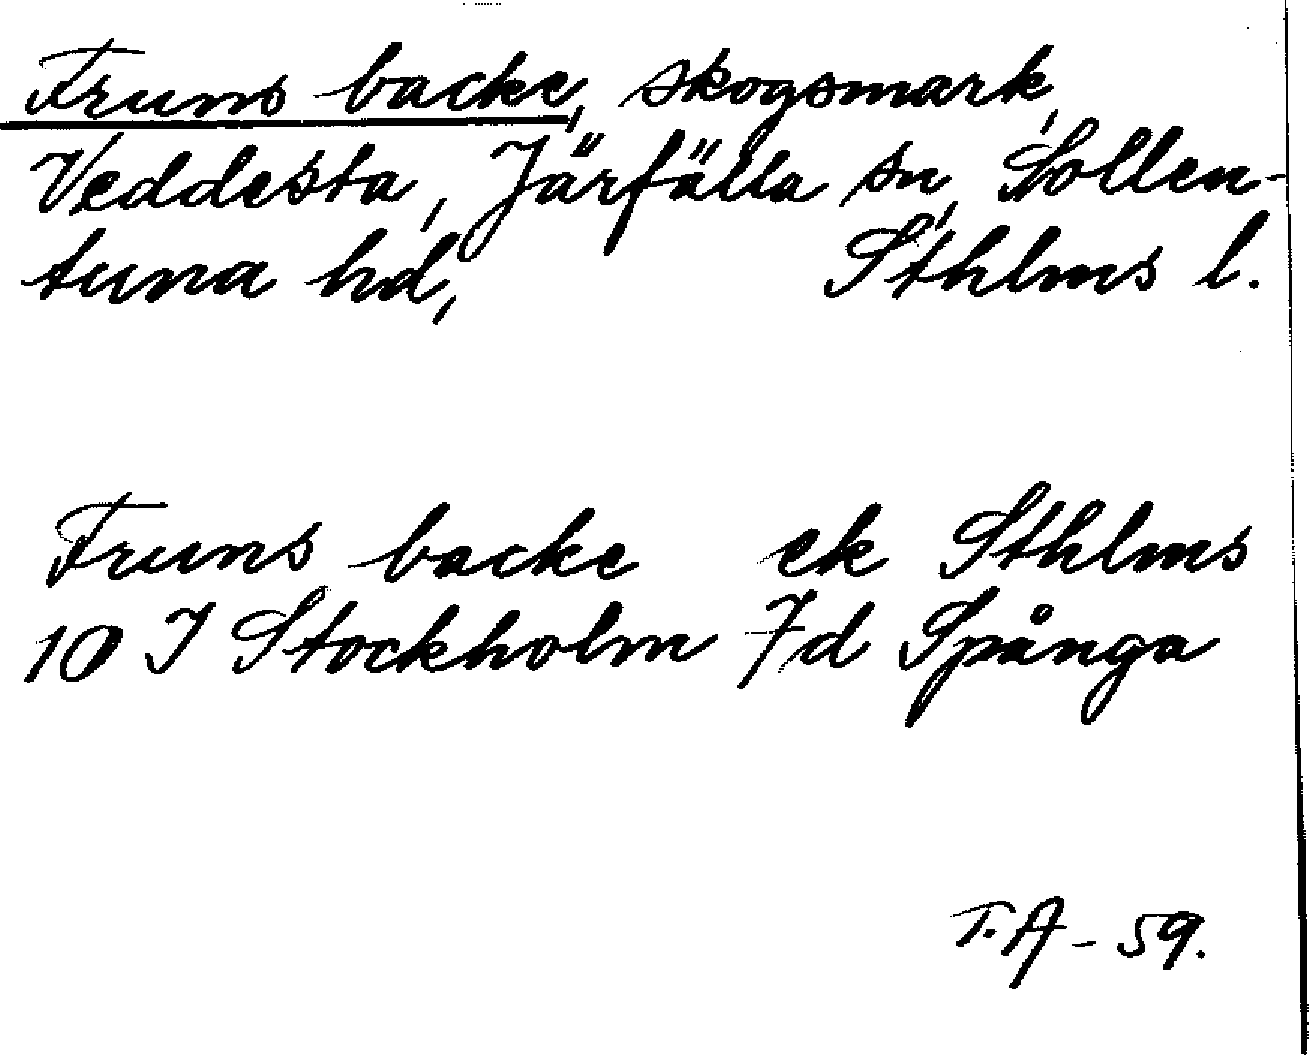 Fruns backe, skogsmark,
Veddesta, Järfälla sn, Sollen-
tuna hd, Sthlms l.
Fruns backe ek Sthlms
10 I Stockholm 7d Spånga
T.A - 59.